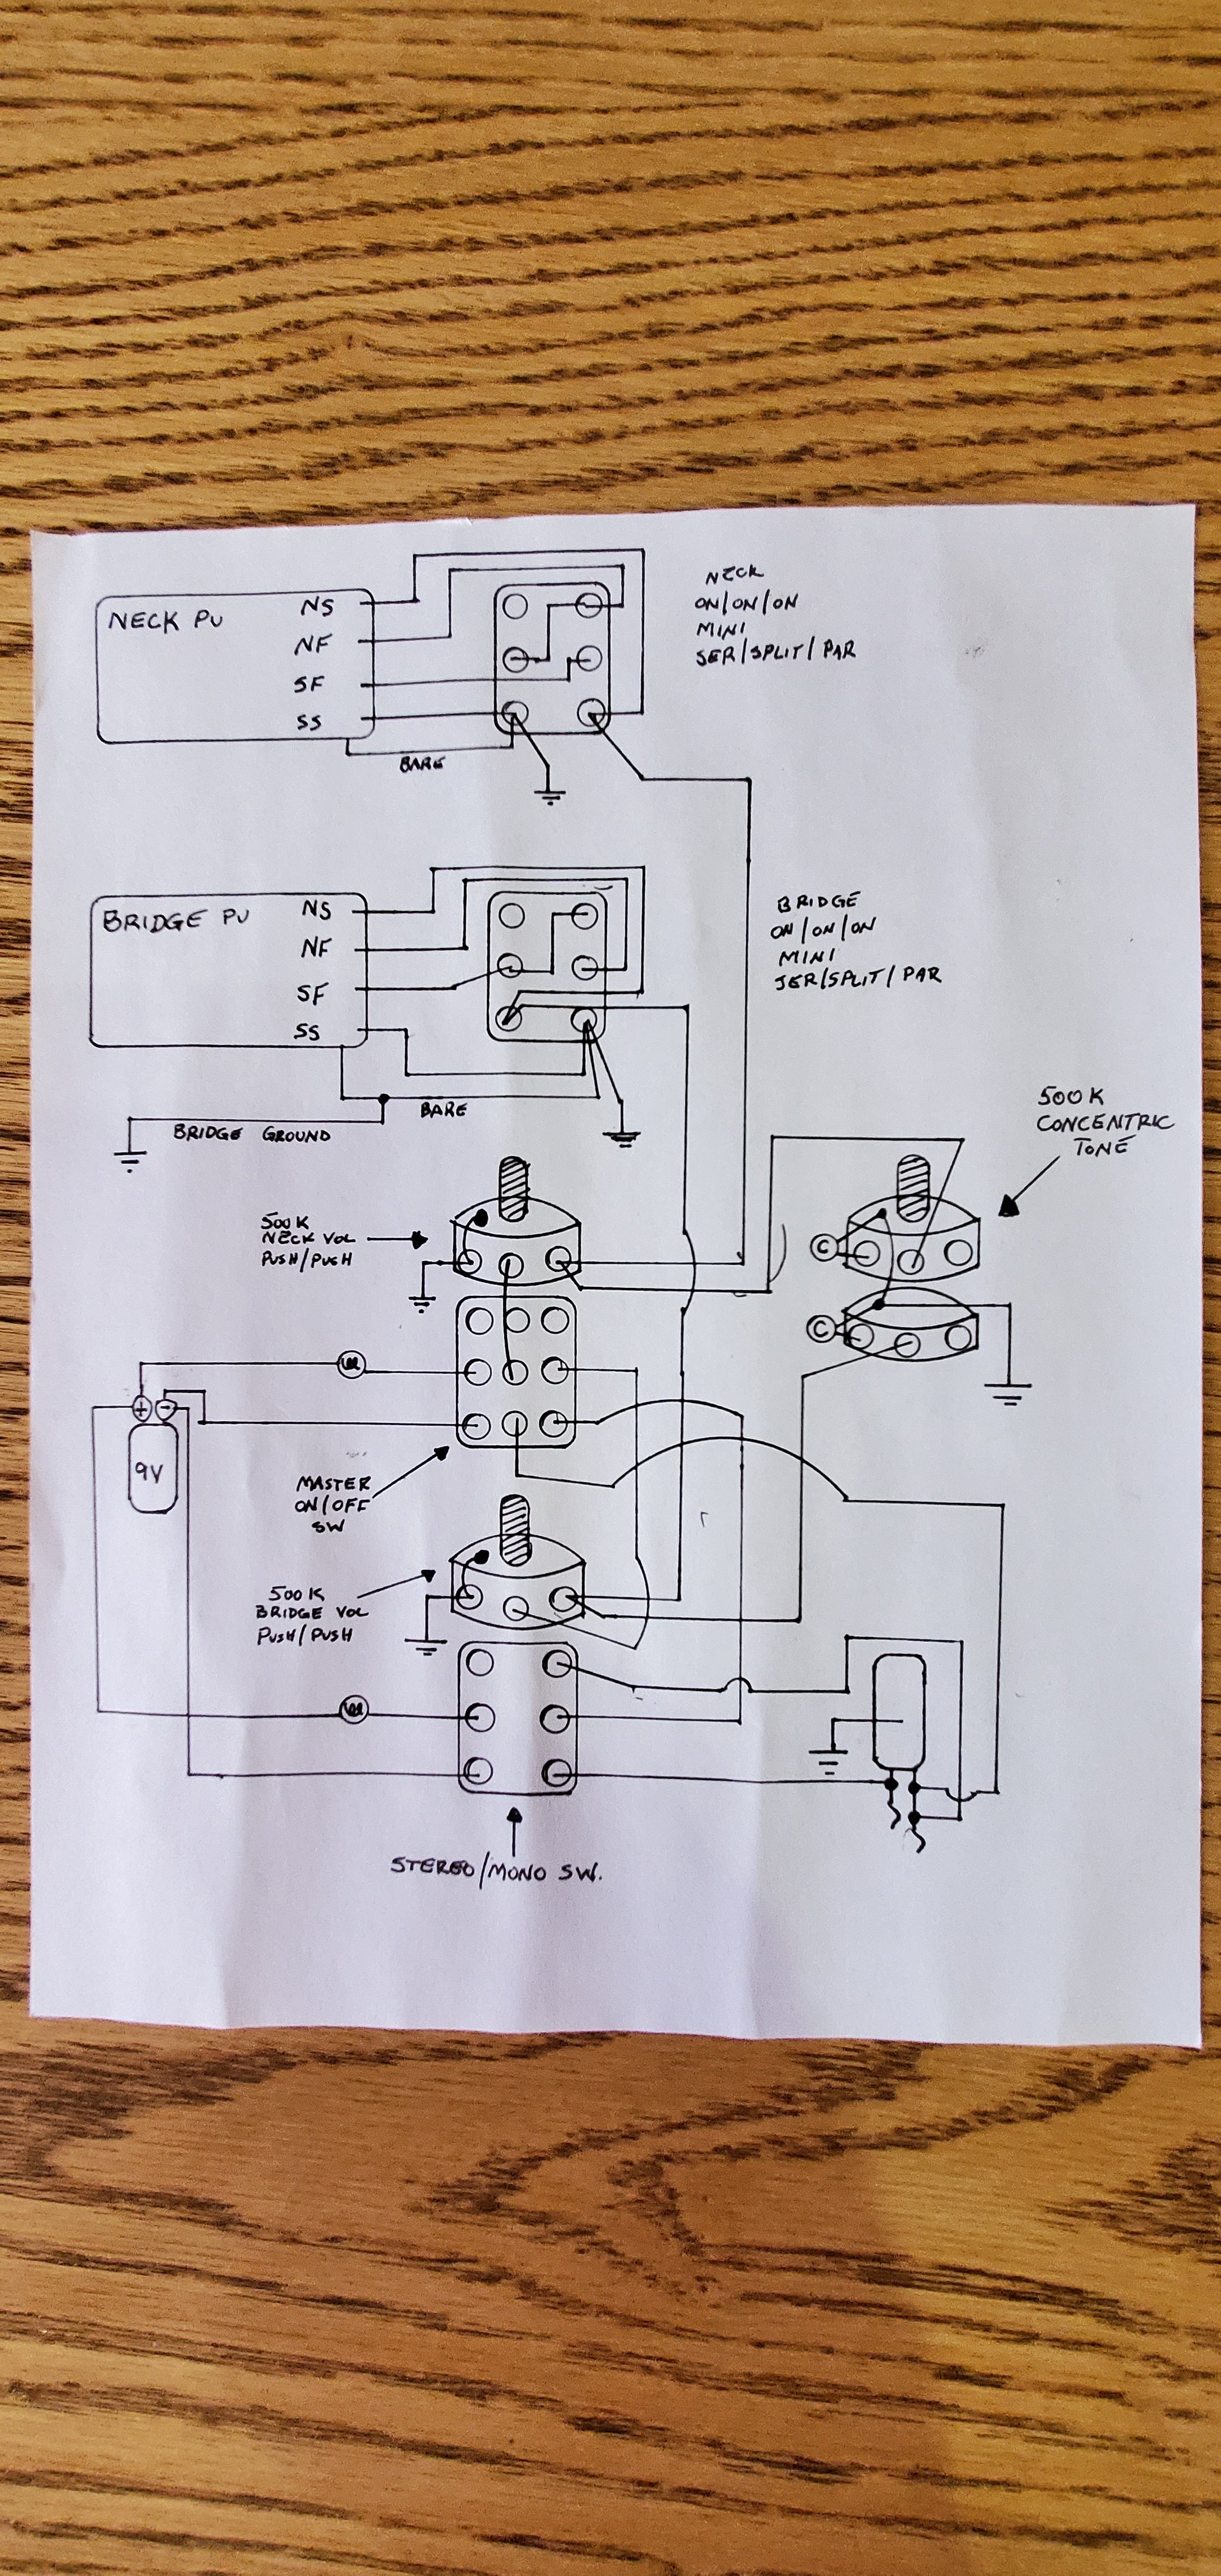 NECK PU
NS
NF
SF
SS
BARE
NECK
ON/ON/ON
MINI
SER/SPLIT/PAR
BRIDGE PU
NS
NF
SF
SS
BARE
BRIDGE GROUND
BRIDGE
ON/ON/ON
MINI
SER/SPLIT/PAR
500K
CONCENTRIC
TONE
500K
NECK VOL
PUSH/PUSH
C
C
+
-
9V
MASTER
ON/OFF
SW
500K
BRIDGE VOL
PUSH/PUSH
STEREO/MONO SW.